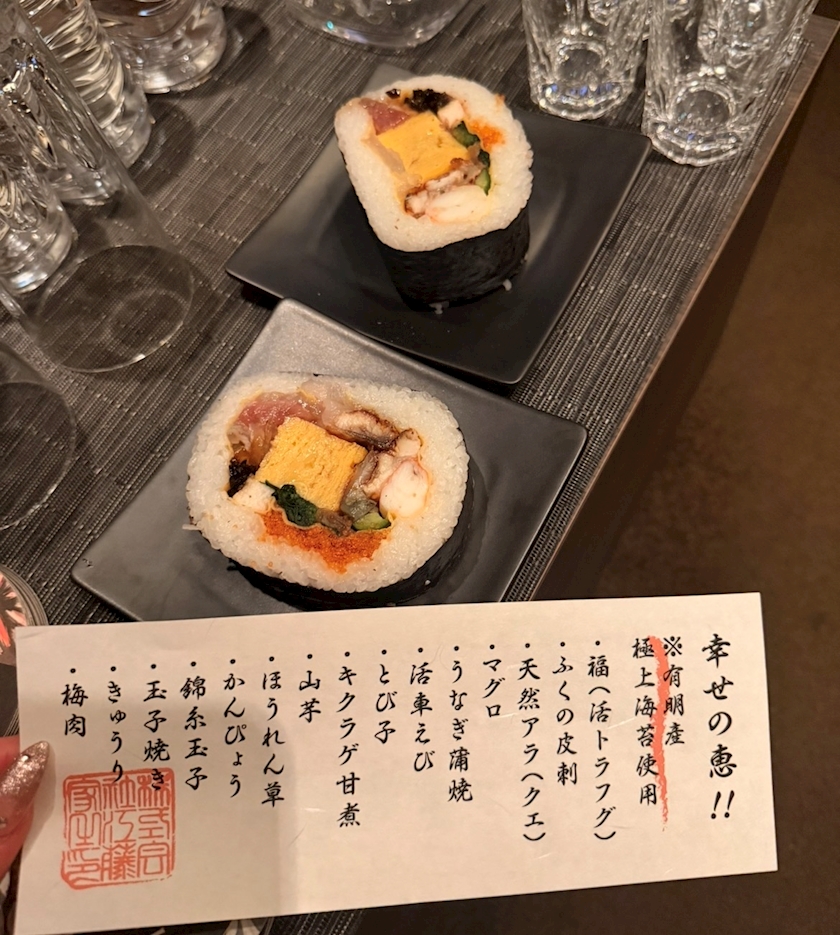 幸せの恵!!
※有明産
極上海苔使用
・福(活トラフグ)
・ふくの皮刺
・天然アラ(クエ)
・マグロ
・うなぎ蒲焼
・活車えび
・とび子
・キクラゲ甘煮
・山芋
・ほうれん草
・かんぴょう
・錦糸玉子
・玉子焼き
・きゅうり
・梅肉